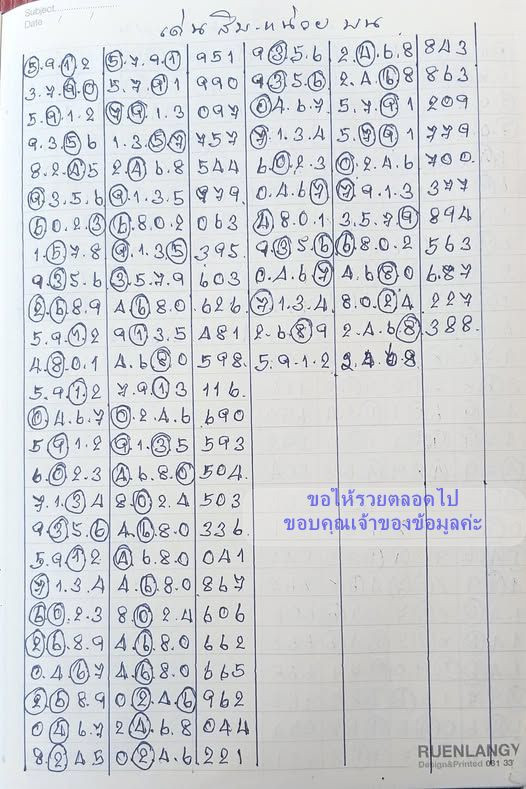 Subject
Date / /
เด่น สิบ-หน่วย บน
5.9.1.2 5.7.9.1 951 9.3.5.6 2.4.6.8 843
3.7.9.0 5.7.9.1 990 9.3.5.6 2.4.6.8 863
5.9.1.2 7.9.1.3 097 0.4.6.7 5.7.9.1 209
9.3.5.6 1.3.5.7 757 7.1.3.4 5.7.9.1 779
8.2.4.5 2.4.6.8 544 6.0.2.3 0.2.4.6 700
9.3.5.6 9.1.3.5 979 0.4.6.7 7.9.1.3 377
6.0.2.3 6.8.0.2 063 4.8.0.1 3.5.7.9 894
1.5.7.8 9.1.3.5 395 9.3.5.6 6.8.0.2 563
9.3.5.6 3.5.7.9 603 0.4.6.7 4.6.8.0 687
2.6.8.9 4.6.8.0 626 7.1.3.4 8.0.2.4 227
5.9.1.2 9.1.3.5 481 2.6.8.9 2.4.6.8 388
4.8.0.1 4.6.8.0 598 5.9.1.2 2.4.6.8
5.9.1.2 7.9.1.3 116
0.4.6.7 0.2.4.6 690
5.9.1.2 9.1.3.5 593
6.0.2.3 4.6.8.0 504
7.1.3.4 8.0.2.4 503
9.3.5.6 4.6.8.0 336
5.9.1.2 4.6.8.0 041
7.1.3.4 4.6.8.0 867
6.0.2.3 8.0.2.4 606
2.6.8.9 4.6.8.0 662
0.4.6.7 4.6.8.0 665
2.6.8.9 0.2.4.6 962
0.4.6.7 2.4.6.8 044
8.2.4.5 0.2.4.6 221
ขอให้รวยตลอดไป
ขอบคุณเจ้าของข้อมูลค่ะ
RUENLANGY
Design&Printed 081 33